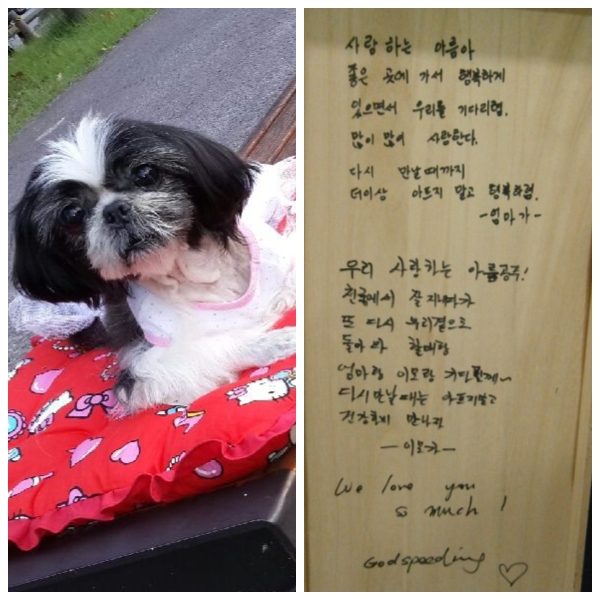 사랑하는 아름아
좋은 곳에 가서 행복하게
있으면서 우리를 기다리렴.
많이 많이 사랑한다.
다시 만날때까지
더이상 아프지 말고 행복하렴.
-엄마가-
우리 사랑하는 아름공주!
천국에서 잘 지내다가
또 다시 우리곁으로
돌아와
엄마랑 이모랑
다시만날때는 아프지말고
건강하게 만나자
-이모가-
We love you
so much!
Godspeeding ♡